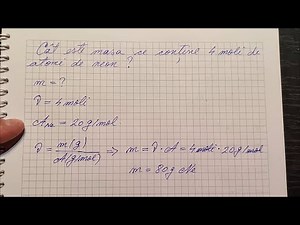 Cât este masa ce conține 4 moli de
atomi de neon ?
m = ?
ν = 4 moli
ANe = 20 g/mol
ν = m(g) / A(g/mol) ⇒ m = ν · A = 4 moli · 20 g/mol
m = 80 g Ne